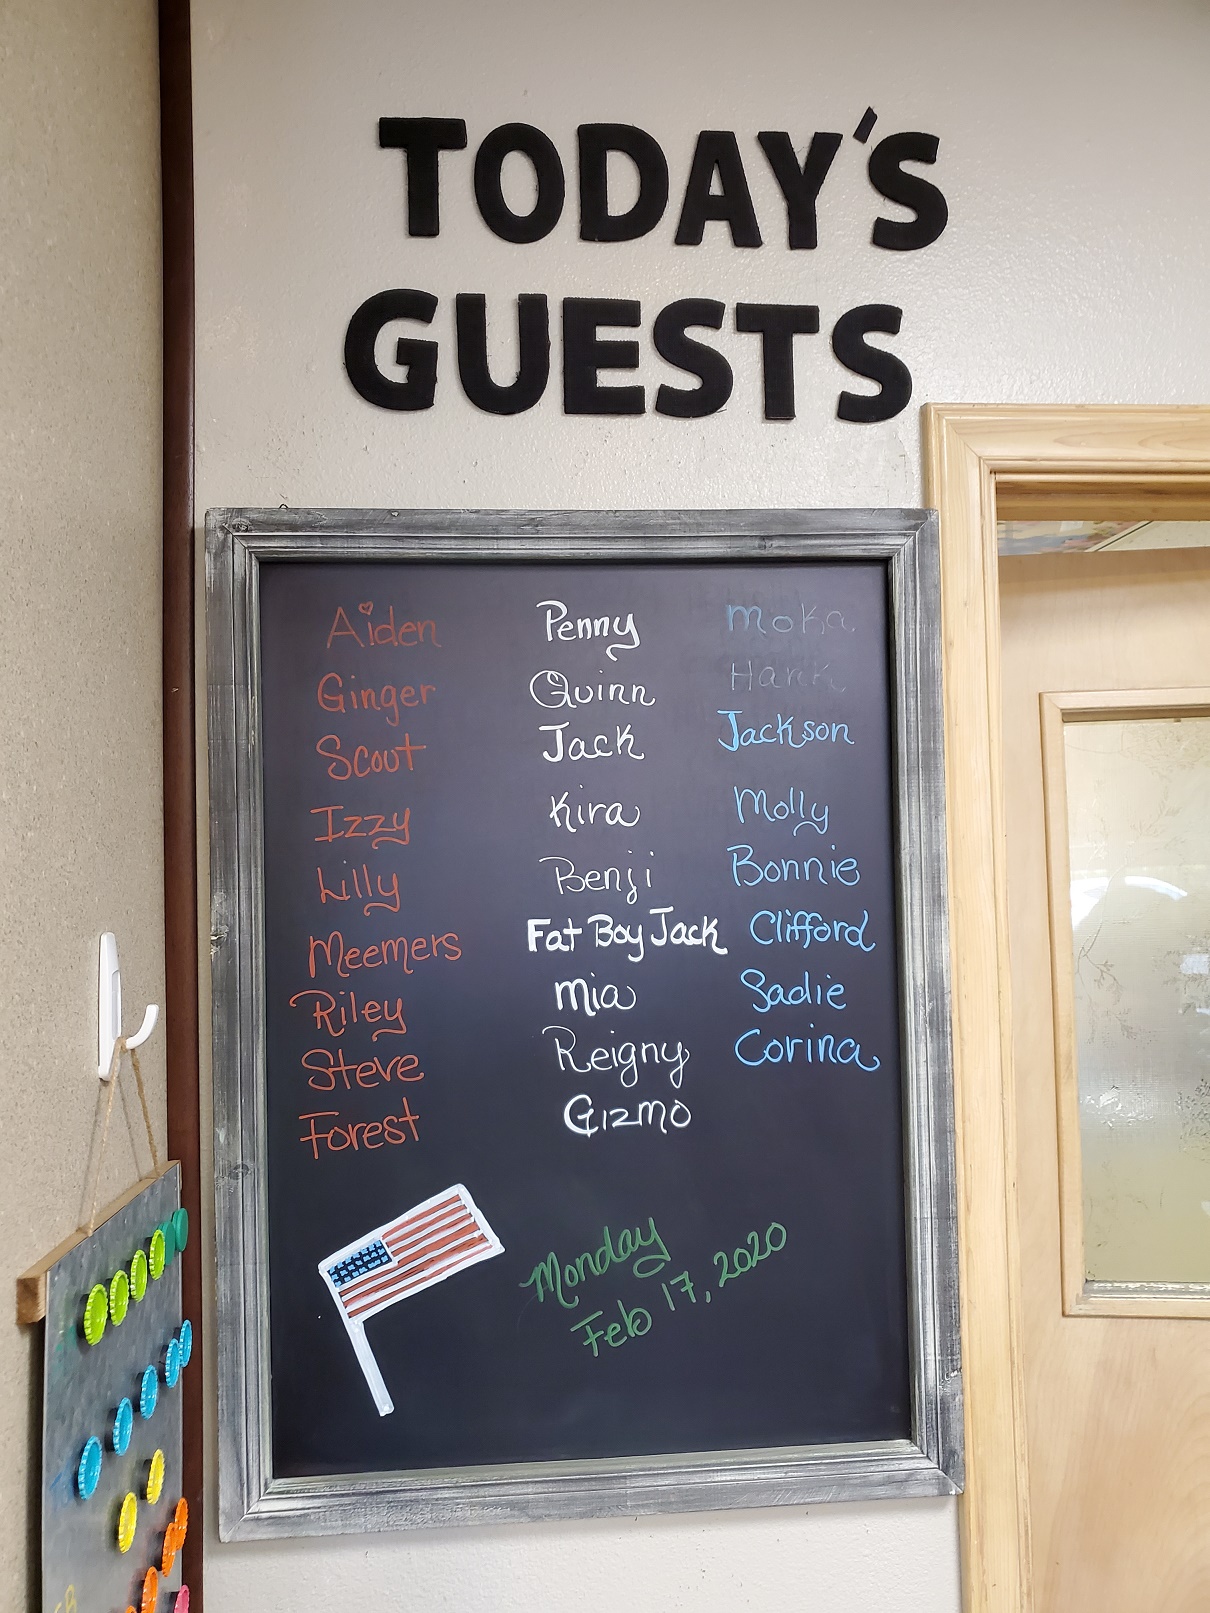 TODAY'S
GUESTS
Aiden
Ginger
Scout
Izzy
Lilly
Meemers
Riley
Steve
Forest
Penny
Quinn
Jack
Kira
Benji
Fat Boy Jack
Mia
Reigny
Gizmo
Moka
Hank
Jackson
Molly
Bonnie
Clifford
Sadie
Corina
Monday
Feb 17, 2020